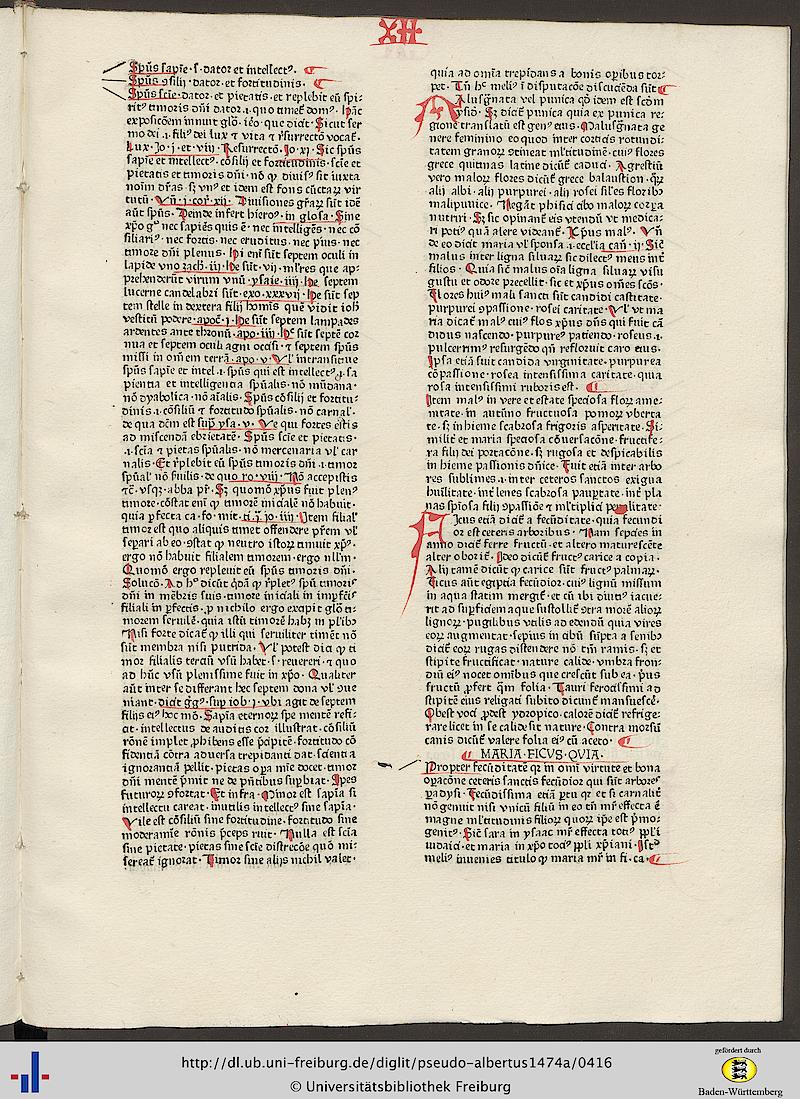 XII
Spūs sapīe · s · dator et intellectꝰ.
Spūs ꝯsilij · dator et fortitudinis.
Spūs scīe · dator et pietatis · et replebit eū spi-
ritꝰ timoris dn̄i dator · i · quo timet domꝰ. Hāc
expositōem innuit glō · iō que dicit · Sicut ser
mo dei · i · filiꝰ dei lux ⁊ vita ⁊ r̄surrectō vocat̄.
Lux · Jo · j · et · viij · Resurrectō · Jo · xj · Sic spūs
sapīe et intellectꝰ · cōsilij et fortitudinis · scīe et
pietatis et timoris dn̄i · nō ꝙ diuisꝰ sit iuxta
noīm dr̄as · sꝫ vnꝰ et idem est fons cūctaꝝ vir
tutū · Vn̄ · j · cor̄ · xij · Diuisiones gr̄aꝝ sūt idē
aūt spūs · Deinde infert hieroꝰ · in glosa · Sine
xp̄o gͦ nec sapiēs quis ē · nec intelligēs · nec cō
siliariꝰ · nec fortis · nec eruditus · nec pius · nec
timore dn̄i plenus · Hi eni sūt septem oculi in
lapide vno zach · iij · He sūt · vij · ml̄res que ap-
prehenderūt virum vnū · ysaie · iiij · He septem
lucerne candelabri sūt · exo · xxxvij · He sūt sep
tem stelle in dextera filij hom̄is quē vidit ioh̄
vestitū podere · apoc̄ · j · He sūt septem lampades
ardentes ante thronū · apo · iiij · Hꝰ sūt septē cor
nua et septem oculi agni occisi · ⁊ septem spūs
missi in om̄em terrā · apo · v · Vl̄ intransitiue
spūs sapīe et intel · i · spūs qui est intellectꝰ · i · sa
pientia et intelligentia spūalis · nō mūdana ·
nō dyabolica · nō aīalis · Spūs cōsilij et fortitu-
dinis · i · cōsiliū ⁊ fortitudo spūalis · nō carnal̄ ·
de qua dcm̄ est sup̄ ysa · v · Ve qui fortes estis
ad miscendā ebrietatē · Spūs scīe et pietatis ·
· i · scīa ⁊ pietas spūalis · nō mercenaria vl̄ car
nalis · Et r̄plebit eū spūs timoris dn̄i · i · timor
spūal̄ nō s̄uilis · de quo ro · viij · Nō accepistis
⁊c̄ · vsqꝫ · abba pr̄ · Sꝫ quomō xp̄us fuit plenꝰ
timore · cōstat enī ꝙ timorē inicialē nō habuit ·
quia ꝑfecta ca · fo · mit · ti · j · jo · iiij · Item filial̄
timor est quo aliquis timet offendere pr̄em vl̄
separi ab eo · ꝯstat ꝙ neutro istoꝝ timuit xp̄ꝰ ·
ergo nō habuit filialem timorem · ergo nll̄m ·
Quomō ergo repleuit eū spūs timoris dn̄i ·
Solucō · Ad hͦ dicūt q̄dā ꝙ r̄pletꝰ spū timoris
dn̄i in mēbris suis · timore iniciali in imꝑfc̄is
filiali in ꝑfectis · ꝑ michilo ergo excipit glō ti-
morem seruilē · quia istū timorē habꝫ in pl̄ibꝰ
Nisi forte dicat̄ ꝙ illi qui seruiliter timēt nō
sūt membra nisi putrida · Vl̄ potest dici ꝙ ti
mor filialis terciū vsū habet · s · reuereri · ⁊ quo
ad hūc vsū plenissime fuit in xp̄o · Qualiter
aūt inter se differant hec septem dona vl̄ ꝯue
niant · dicit gḡ · sup iob · j · vbi agit de septem
filijs eiꝰ hoc mō · Sapīa eternoꝝ spe mentē refi-
cit · intellectus de auditis cor illustrat · cōsiliū
rōnē implet ꝓhibens esse p̄cipitē · fortitudo cō
fidentiā cōtra aduersa trepidanti dat · scientia
ignorantiā pellit · pietas oꝑa mīe docet · timor
dn̄i mentē ꝑmit ne de p̄ntibus suꝑbiat · Spes
futuroꝝ ꝯfortat · Et infra · Minor est sapīa si
intellectu careat · inutilis intellectꝰ sine sapīa ·
Vile est cōsiliū sine fortitudine · fortitudo sine
moderamīe rōnis p̄ceps ruit · Nulla est scīa
sine pietate · pietas sine scīe distrectōe quō mi-
sereat̄ ignorat · Timor sine alijs nichil valet ·
quia ad om̄ia trepidans a bonis oꝑibus tor-
pet · Tn̄ hͦ meliꝰ ī disputacōe discucienda sūt
Malusḡnata vel punica qd̄ idem est scd̄m
ysid̄ · Sꝫ dicit̄ punica quia ex punica re-
gione translatū est genꝰ eius · Malusḡnata ge
nere feminino eo quod inter corticis rotundi-
tatem granoꝝ ꝯtineat ml̄titudinē · cuiꝰ flores
grece quitinas latine dicūt̄ caduci · Agrestiū
vero maloꝝ flores dicūt̄ grece balaustion · qͦꝝ
alij albi · alij purpurei · alij rosei sil̄es floribꝰ
malipunice · Negāt phisici cibo maloꝝ corꝑa
nutriri · Sꝫ sic opinant̄ eis vtendū vt medica-
ri poti quā alere videant̄ · Xp̄us malꝰ · Vn̄
de eo dicit maria vl̄ sponsa · i · eccl̄ia can̄ · ij · Sic̄
malus inter ligna siluaꝝ sic dilectꝰ meus int̄
filios · Quia sic̄ malus oīa ligna siluaꝝ visu
gustu et odore precellit · sic et xp̄us om̄es scōs ·
Flores huiꝰ mali sancti sūt candidi castitate ·
purpurei ꝯpassione · rosei caritate · Vl̄ vt ma
ria dicat̄ malꝰ cuiꝰ flos xp̄us dn̄s qui fuit cā
didus nascendo · purpureꝰ patiendo · roseus · i ·
pulcerrimꝰ resurgēdo qn̄ refloruit caro eius ·
Ipsa etiā fuit candida virginitate · purpurea
cōpassione · rosea intensissima caritate · quia
rosa intensissimi ruboris est ·
Item malꝰ in vere et estate speciosa floꝝ ame-
nitate · in autūno fructuosa pomoꝝ vberta
te · sꝫ in hieme scabrosa frigoris asperitate · Si-
milit̄ et maria speciosa cōuersacōne · fructife-
ra filij dei portacōne · sꝫ rugosa et despicabilis
in hieme passionis dn̄ice · Fuit etiā inter arbo
res sublimes · i · inter ceteros sanctos exigua
humilitate · int̄ lenes scabrosa pauꝑtate · int̄ pla
nas spīosa filij passiōe ⁊ ml̄tiplici penalitate ·
Ficus etiā dicit̄ a fecūditate · quia fecundi
or est ceteris arboribus · Nam sepcies in
anno dicit̄ ferre fructū · et altero maturescēte
alter oborit̄ · Ideo dicūt̄ fructꝰ carice a copia ·
Alij tamē dicūt ꝙ carice sūt fructꝰ palmaꝝ ·
Ficus aūt egiptia fecūdior · cuiꝰ lignū missum
in aqua statim mergit̄ · et cū ibi diutiꝰ iacue-
rit ad suꝑficiem aque sustollit̄ ꝯtra morē alioꝝ
lignoꝝ · pugilibus valis ad edendū quia vires
eoꝝ augmentat · sepius in cibū sūpta a senibꝰ
dicit̄ eoꝝ rugas distendere nō tm̄ ramis · sꝫ et
stipite fructificat · nature calide · vmbra fron-
diū eiꝰ nocet om̄ibus que crescūt sub ea · p̄us
fructū ꝓfert qͣm folia · Tauri ferocissimi ad
stipitē eius religati subito dicūt̄ mansuescē ·
Obest voci ꝓdest ydropico · calorē dicit̄ refrige-
rare licet in se calide sit nature · Contra morsū
canis dicūt̄ valere folia eiꝰ cū aceto ·
MARIA · FICVS · QVIA ·
Propter fecūditatē qͣꝝ in om̄i virtute et bona
oꝑacōne ceteris sanctis fecūdior qui sūt arbores
ꝑadysi · Fecūdissima etiā ꝑtu qꝫ et si carnalit̄
nō genuit nisi vnicū filiū in eo tn̄ mr̄ effecta ē
magne ml̄titudinis filioꝝ quoꝝ ip̄e est p̄mo-
genitꝰ · Sic̄ sara in ysaac mr̄ effecta totiꝰ ppl̄i
iudaici · et maria in xp̄o tociꝰ ppl̄i xp̄iani · Istͣ
meliꝰ inuenies titulo ꝙ maria mr̄ in fi · ca ·
http://dl.ub.uni-freiburg.de/diglit/pseudo-albertus1474a/0416
© Universitätsbibliothek Freiburg
gefördert durch
Baden-Württemberg